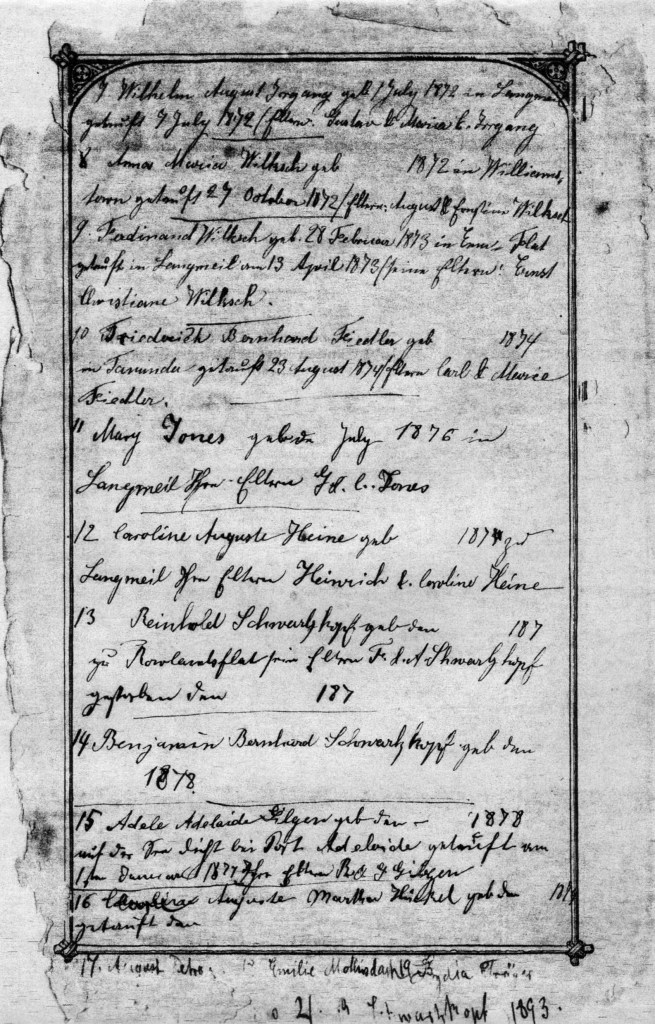 7 Wilhelm August Jrrgang geb 1 July 1872 in Langmeil
getauft 7 July 1872 / Eltern. Gustav & Maria L. Jrrgang
8 Anna Maria Wilksch geb 1872 in Williams,
town getauft 27 October 1872 / Eltern. August & Ernstine Wilksch
9. Ferdinand Wilksch geb. 28 Februar 1873 in Flat
getauft in Langmeil am 13 April 1873 / seine Eltern: Ernst
Christiane Wilksch.
10 Friedreich Bernhard Fiedler geb 1874
in Tanunda getauft 23 August 1874 / Eltern Carl & Marie
Fiedler.
11 Mary Jones geb de July 1876 in
Langmeil Ihre Eltern G & C. Jones
12 Caroline Auguste Heine geb 1874 zu
Langmeil Ihre Eltern Heinrich & Caroline Heine
13 Reinhold Schwarzkopf geb den 187
zu Rowlandsflat sein Eltern F. & A Schwarzkopf
gestorben den 187
14 Benjamin Bernhard Schwarzkopf geb den
1878
15 Adele Adelaide Gilgen geb den 1878
auf der See dicht bei Port Adelaide getauft am
1877 Ihre Eltern Gilgen
16 Auguste Martha Hückel geb den
getauft den
17. August Emilie Lydia
Schwarzkopf 1893.